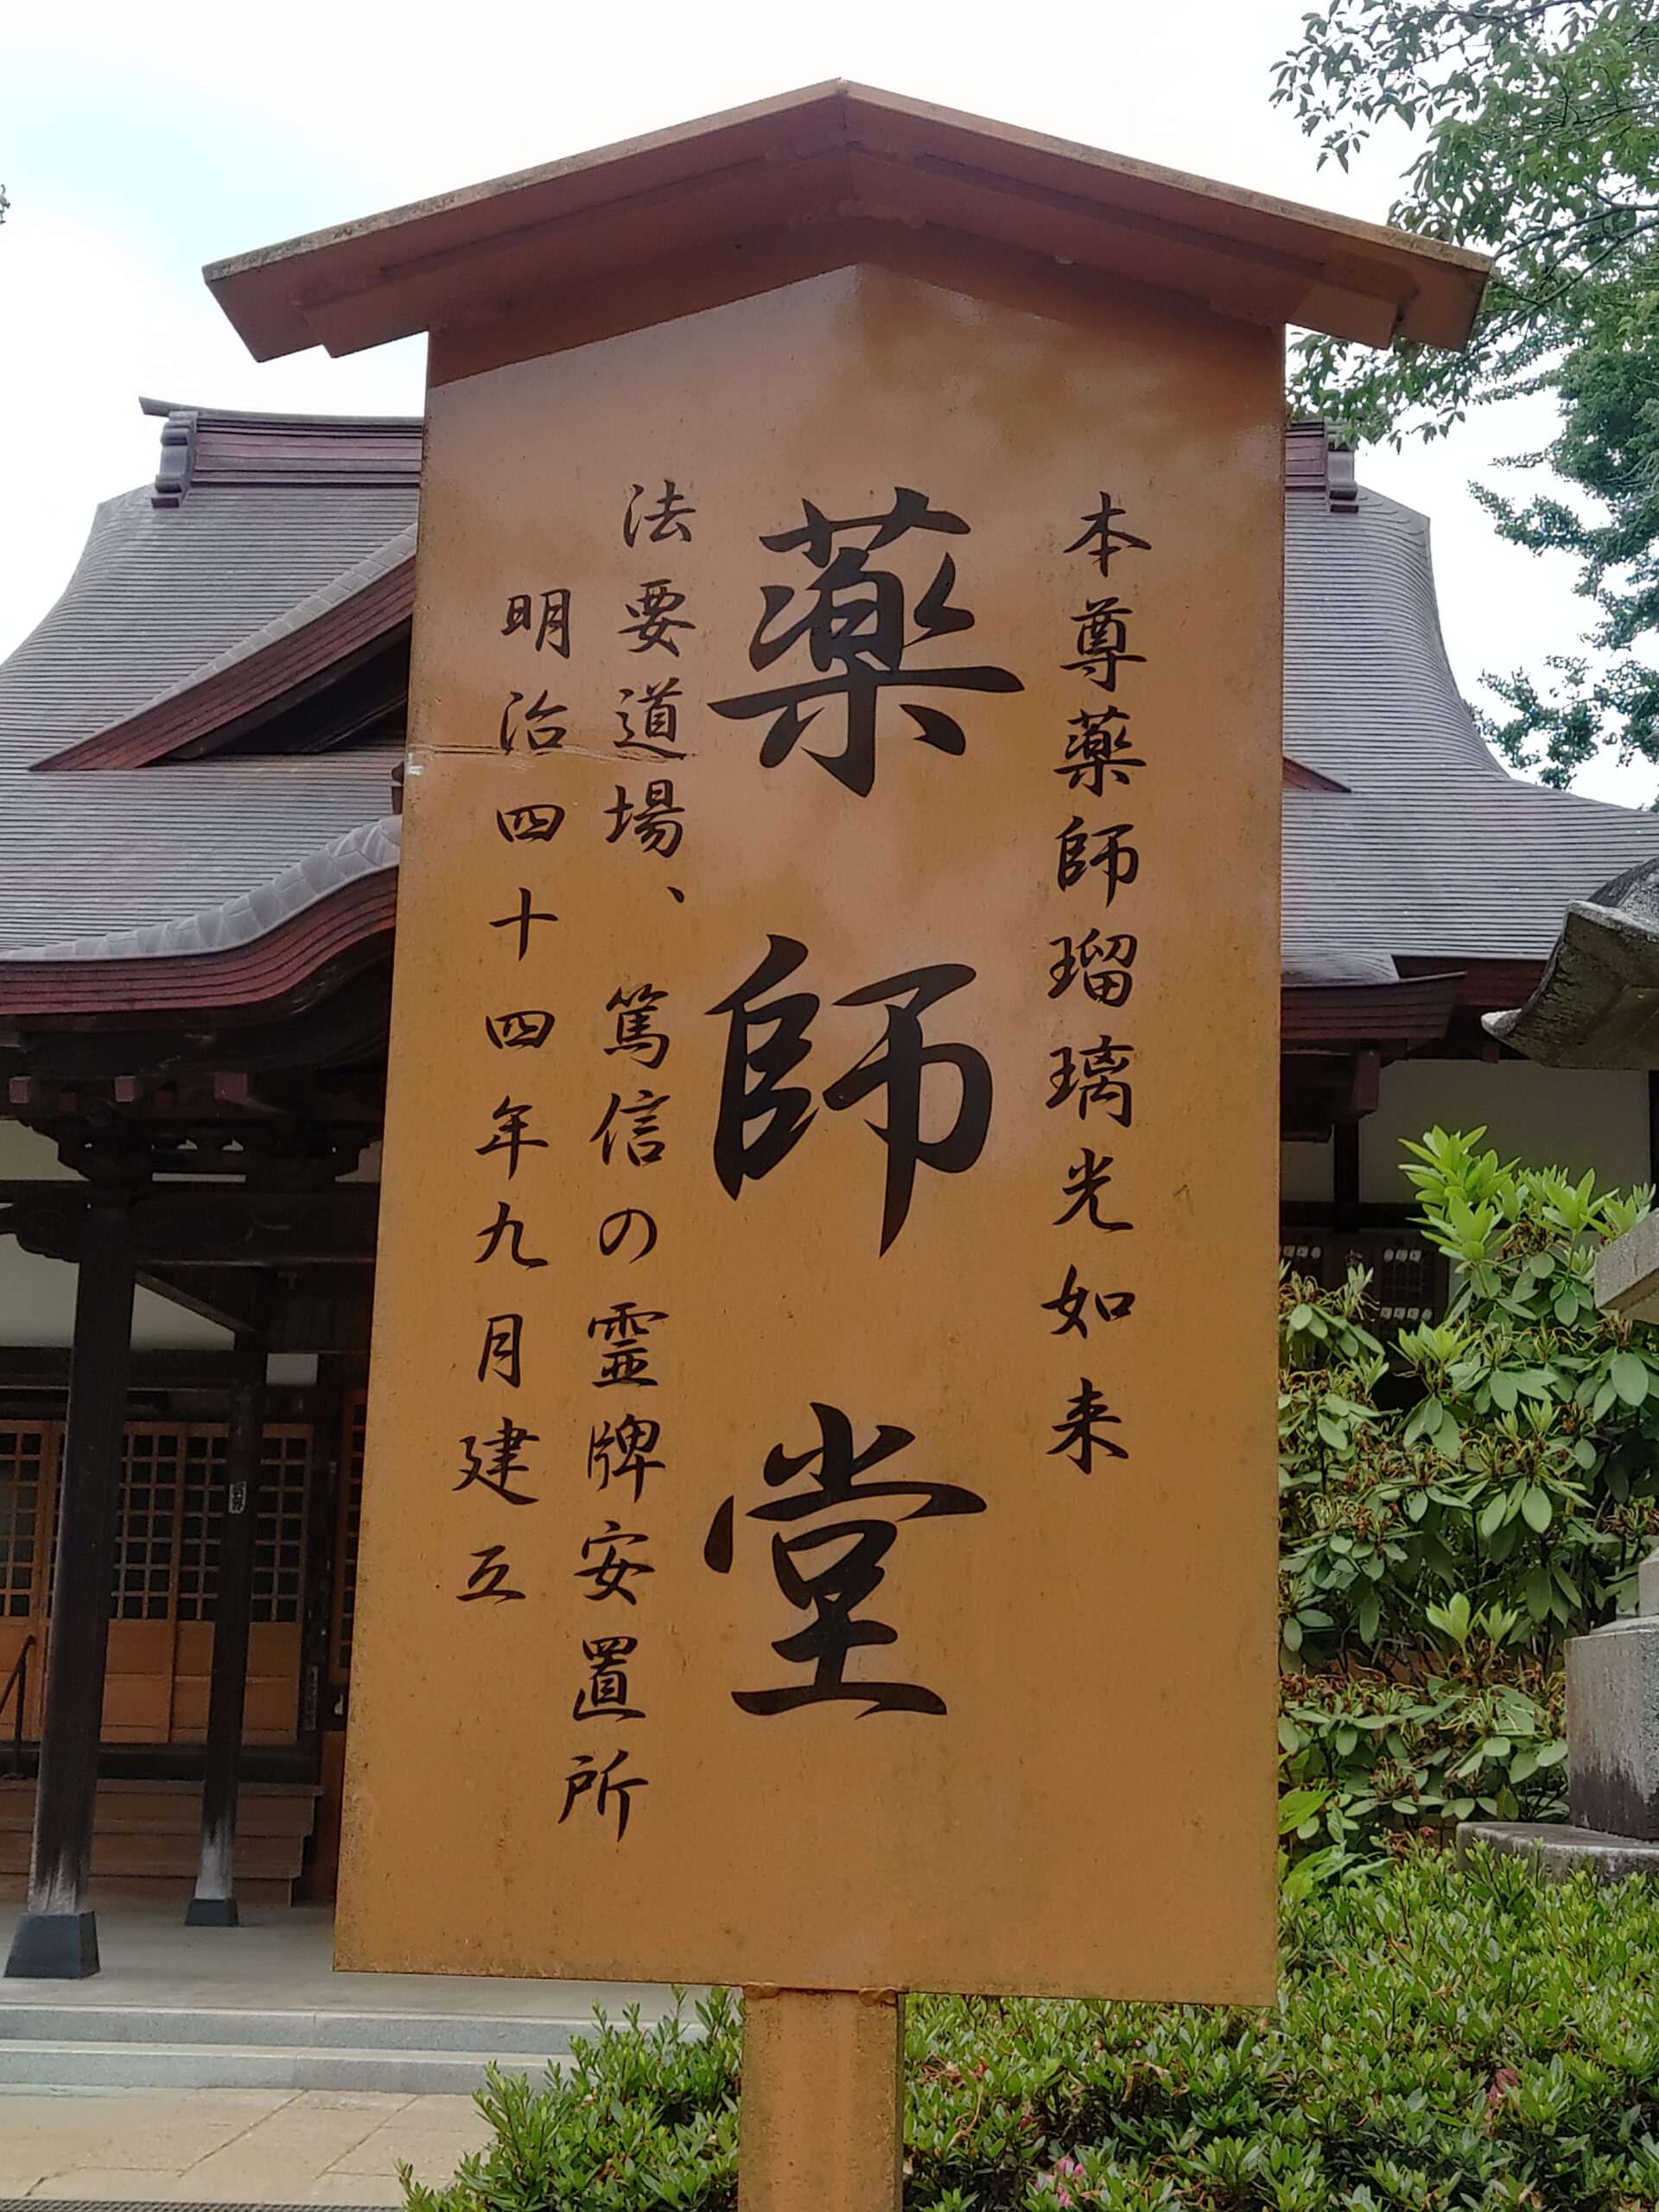 本尊薬師瑠璃光如来
薬師堂
法要道場、篤信の霊牌安置所
明治四十四年九月建立